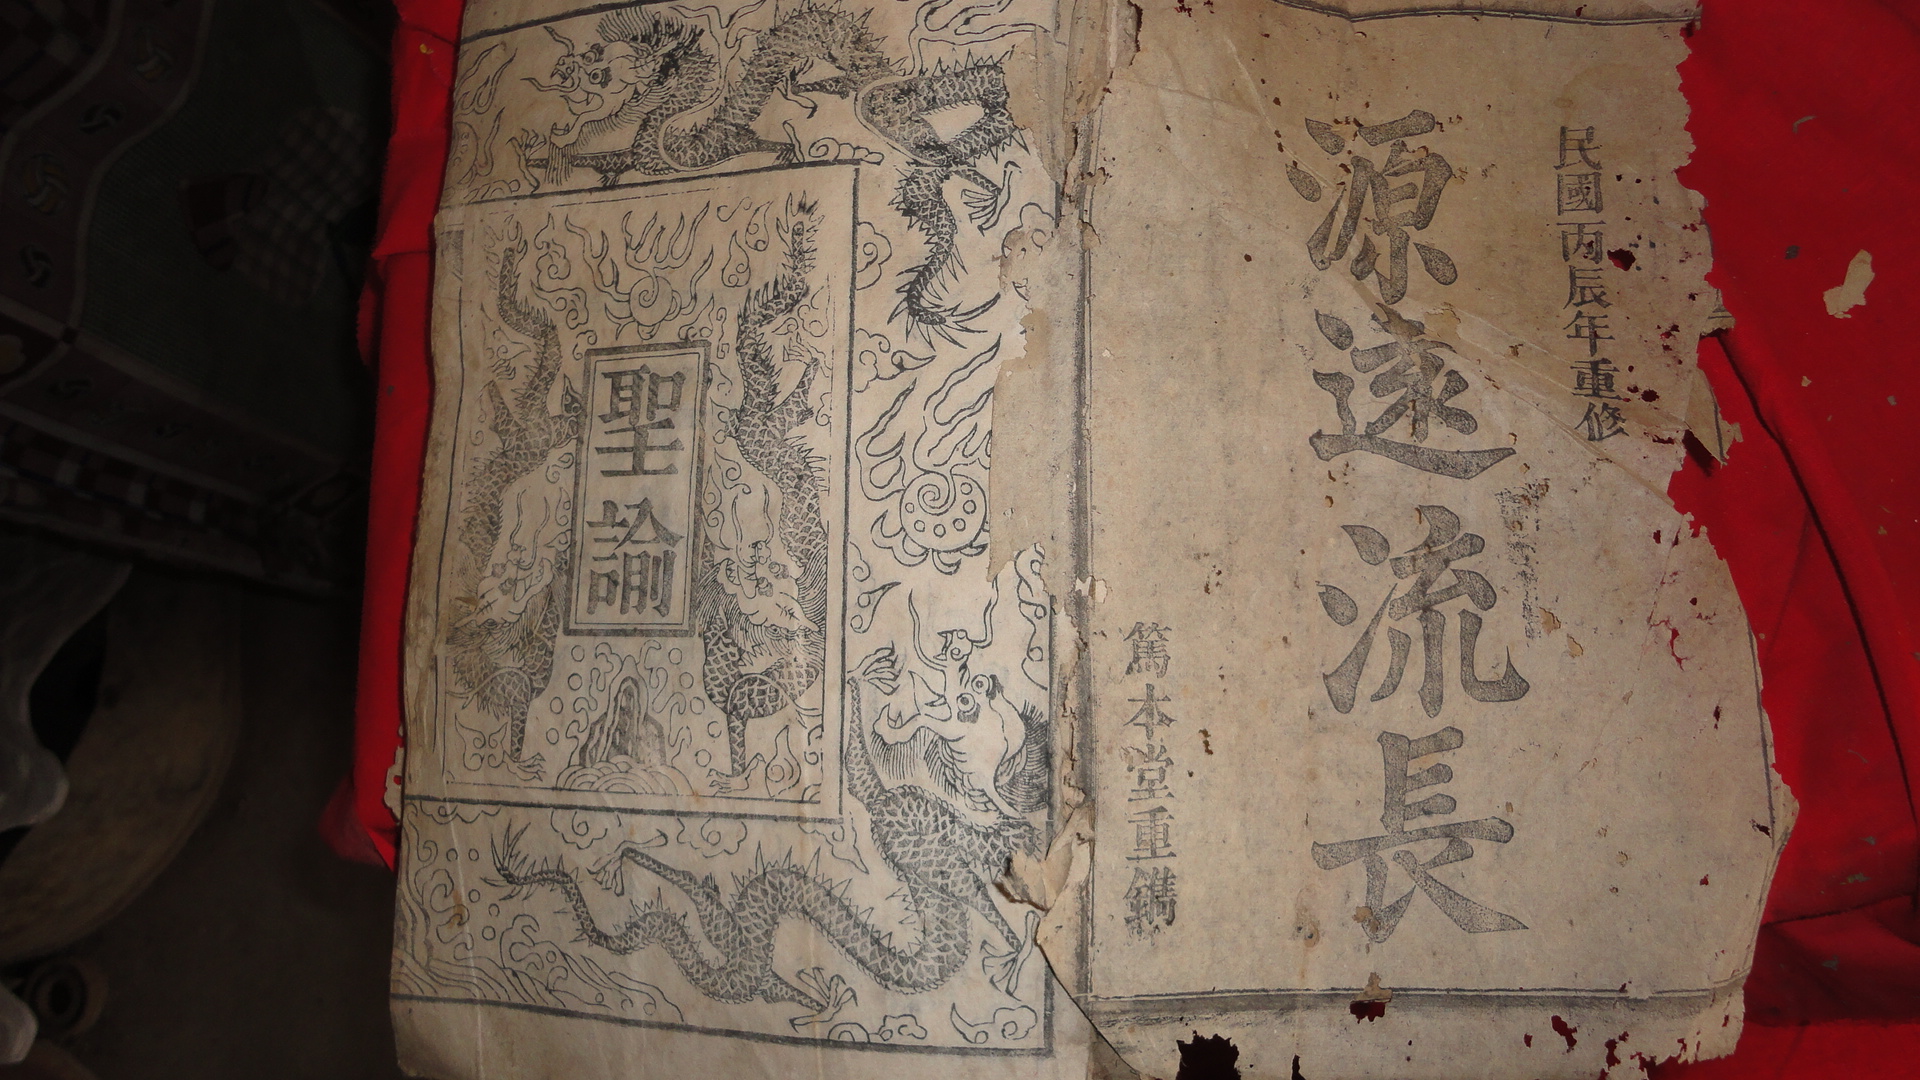 民國丙辰年重修
源遠流長
篤本堂重鐫
聖諭